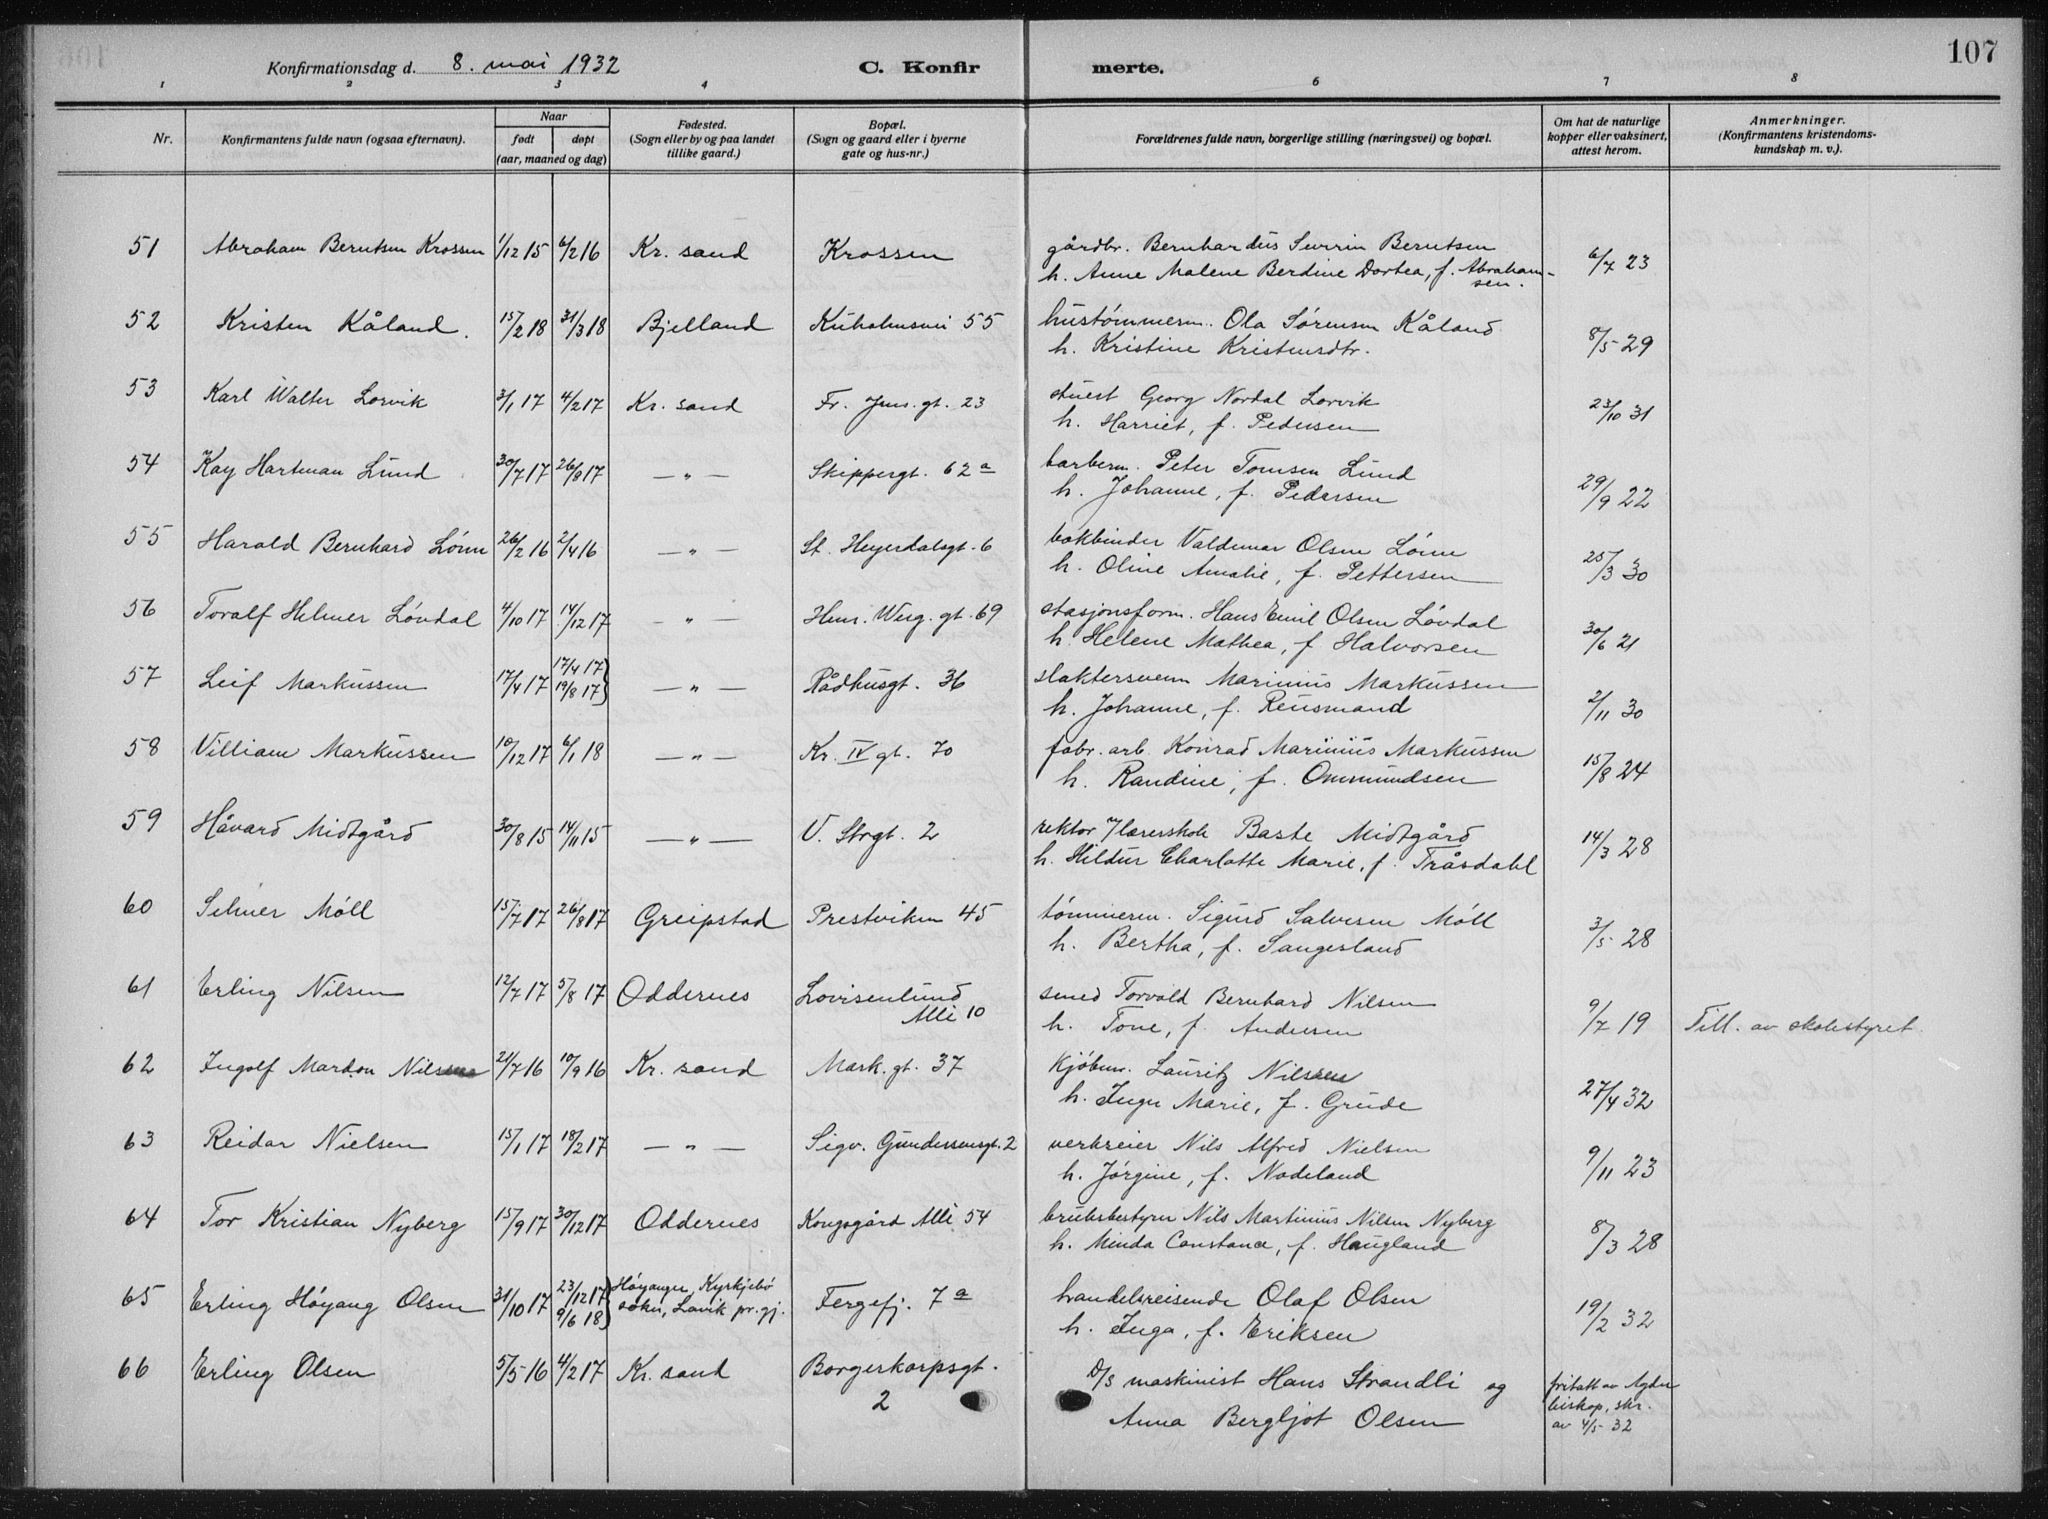 107
Konfirmationsdag d. 8. mai 1932 C. Konfirmerte.
1 2 3 4 5 6 7 8
Nr. Konfirmantens fulde navn (ogsaa efternavn). Naar født døpt (aar, maaned og dag) Fødested. (Sogn eller by og paa landet tillike gaard.) Bopæl. (Sogn og gaard eller i byerne gate og hus-nr.) Forældrenes fulde navn, borgerlige stilling (næringsvei) og bopæl. Om hat de naturlige kopper eller vaksinert, attest herom. Anmerkninger. (Konfirmantens kristendomskundskap m. v.).
51 Abraham Berntsen Krossen 1/12 15 6/2 16 Kr. sand Krossen gårdbr. Bernhardus Severin Berntsen
h. Anne Malene Berdine Dortea, f. Abrahamsen. 6/7 23
52 Kristen Kåland. 15/2 18 31/3 18 Bjelland Kuholmsvei 55 hustømmerm. Ola Sørensen Kåland
h. Kristine Kristensdtr. 8/5 29
53 Karl Walter Lorvik 3/1 17 4/2 17 Kr. sand Fr. Jens. gt. 23 stuert Georg Nordal Lorvik
h. Harriet, f. Pedersen 23/10 31
54 Kay Hartman Lund 30/7 17 26/8 17 — " — Skippergt. 62 a barberm. Peter Tomsen Lund
h. Johanne, f. Pedersen 29/9 22
55 Harald Bernhard Lønn 26/2 16 2/4 16 — " — St. Heyerdalsgt. 6 bokbinder Valdemar Olsen Lønn
h. Oline Amalie, f. Pettersen 25/3 30
56 Toralf Helmer Løvdal 4/10 17 14/12 17 — " — Henr. Werg. gt. 69 stasjonsform. Hans Emil Olsen Løvdal
h. Helene Mathea, f. Halvorsen 30/6 21
57 Leif Markussen 17/4 17 17/4 17 19/8 17 — " — Rådhusgt. 36 slaktersvenn Marinius Markussen
h. Johanne, f. Reusmand 2/11 30
58 Villiam Markussen 10/12 17 6/1 18 — " — Kr. IV gt. 70 fabr. arb. Konrad Marinius Markussen
h. Randine, f. Ommundsen 15/8 24
59 Håvard Midtgård 30/8 15 14/11 15 — " — V. Strgt. 2 rektor v/lærerskole Baste Midtgård
h. Hildur Charlotte Marie, f. Tråsdahl 14/3 28
60 Selmer Møll 15/7 17 26/8 17 Greipstad Prestviken 45 tømmerm. Sigurd Salvesen Møll
h. Bertha, f. Sangesland 3/5 28
61 Erling Nilsen 12/7 17 5/8 17 Oddernes Lovisenlund Alle 10 smed Torvald Bernhard Nilsen
h. Tone, f. Andersen 9/7 19 Till. av skolestyret.
62 Ingolf Mardon 21/7 16 10/9 16 Kr. sand Mark. gt. 37 kjøbm. Lauritz
h. Inger Marie, f. Grude 27/4 32
63 Reidar Nielsen 15/1 17 18/2 17 — " — Sigv. Gundersensgt. 2 verkseier Nils Alfred Nielsen
h. Jørgine, f. Nodeland 9/11 23
64 Tor Kristian Nyberg 15/9 17 30/12 17 Oddernes Kongsgård Alle 54 bruksbestyrer Nils Martinius Nilsen Nyberg
h. Minda Constance, f. Haugland 8/3 28
65 Erling Høyang Olsen 31/10 17 23/12 17 9/6 18 Høyanger, Kyrkjebø sokn, Lavik pr. gj. Fergefj. 7 a handelsreisende Olaf Olsen
h. Inga, f. Eriksen 19/2 32
66 Erling Olsen 5/5 16 4/2 17 Kr. sand Borgerkorpsgt. 2 D/S maskinist Hans Strandli og
Anna Bergljot Olsen fritatt av Agder biskop, skr. av 4/5 32